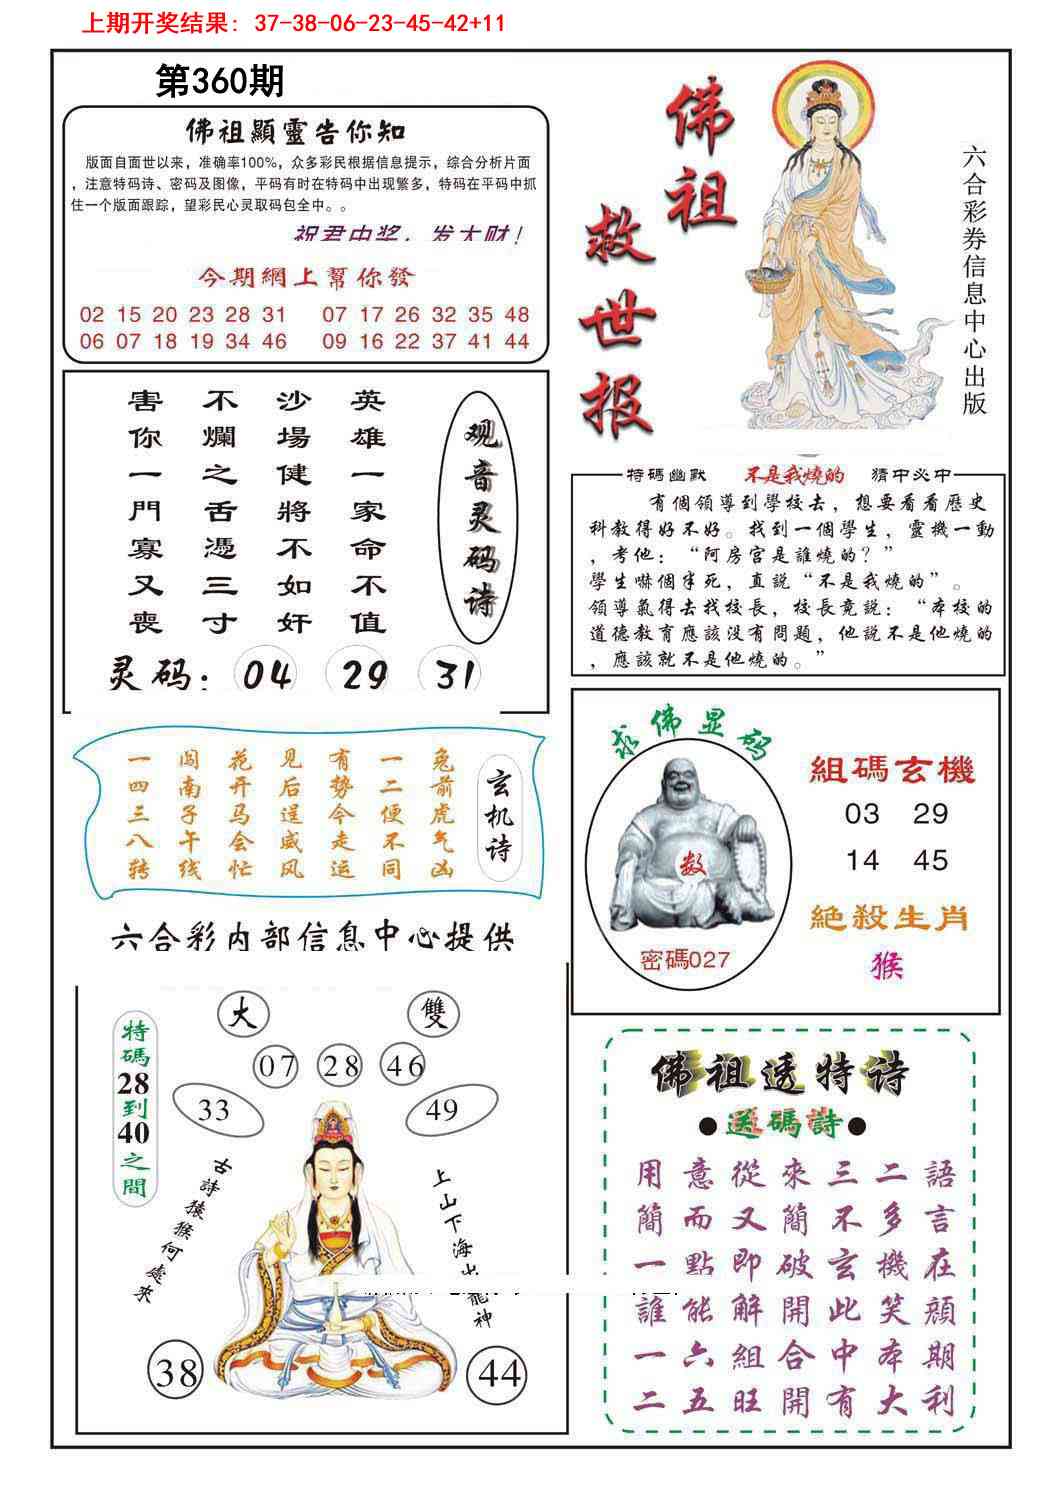 上期开奖结果: 37-38-06-23-45-42+11
第360期
佛祖顯靈告你知
版面自面世以来，准确率100%，众多彩民根据信息提示，综合分析片面
，注意特码诗、密码及图像，平码有时在特码中出现繁多，特码在平码中抓
住一个版面跟踪，望彩民心灵取码包全中。。
祝君中奖，发大财！
今期網上幫你發
02 15 20 23 28 31 07 17 26 32 35 48
06 07 18 19 34 46 09 16 22 37 41 44
佛祖
救世报
六合彩券信息中心出版
观音灵码诗
英雄一家命不值
沙場健將不如奸
不爛之舌憑三寸
害你一門寡又喪
灵码：04 29 31
特碼幽默 不是我燒的 猜中必中
有個領導到學校去，想要看看歷史
科教得好不好。找到一個學生，靈機一動
，考他：“阿房宫是誰燒的？”
學生嚇個半死，直説“不是我燒的”。
領導氣得去找校長，校長竟説：“本校的
道德教育應該没有問題，他説不是他燒的
，應該就不是他燒的。”
玄机诗
兔前虎气凶
一二便不同
有势今走运
见后逞威风
花开马会忙
闯南子午线
一四三八转
求佛显码
数
密碼027
組碼玄機
03 29
14 45
絕殺生肖
猴
六合彩内部信息中心提供
特碼28到40之間
大 雙
07 28 46
33 49
古詩猿猴何處來
上山下海出龍神
38 44
佛祖透特诗
●送碼詩●
用意從來三二語
簡而又簡不多言
一點即破玄機在
誰能解開此笑顔
一六組合中本期
二五旺開有大利